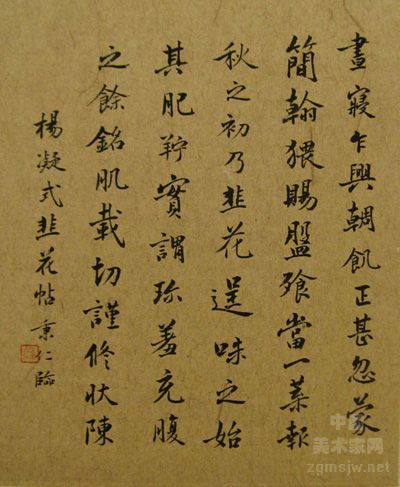 晝寢乍興輖飢正甚忽蒙
簡翰猥賜盤飧當一葉報
秋之初乃韭花逞味之始
其肥羜實謂珍羞充腹
之餘銘肌載切謹修狀陳
楊凝式韭花帖 秉仁臨
中国
美术家网
zgmsjw.net